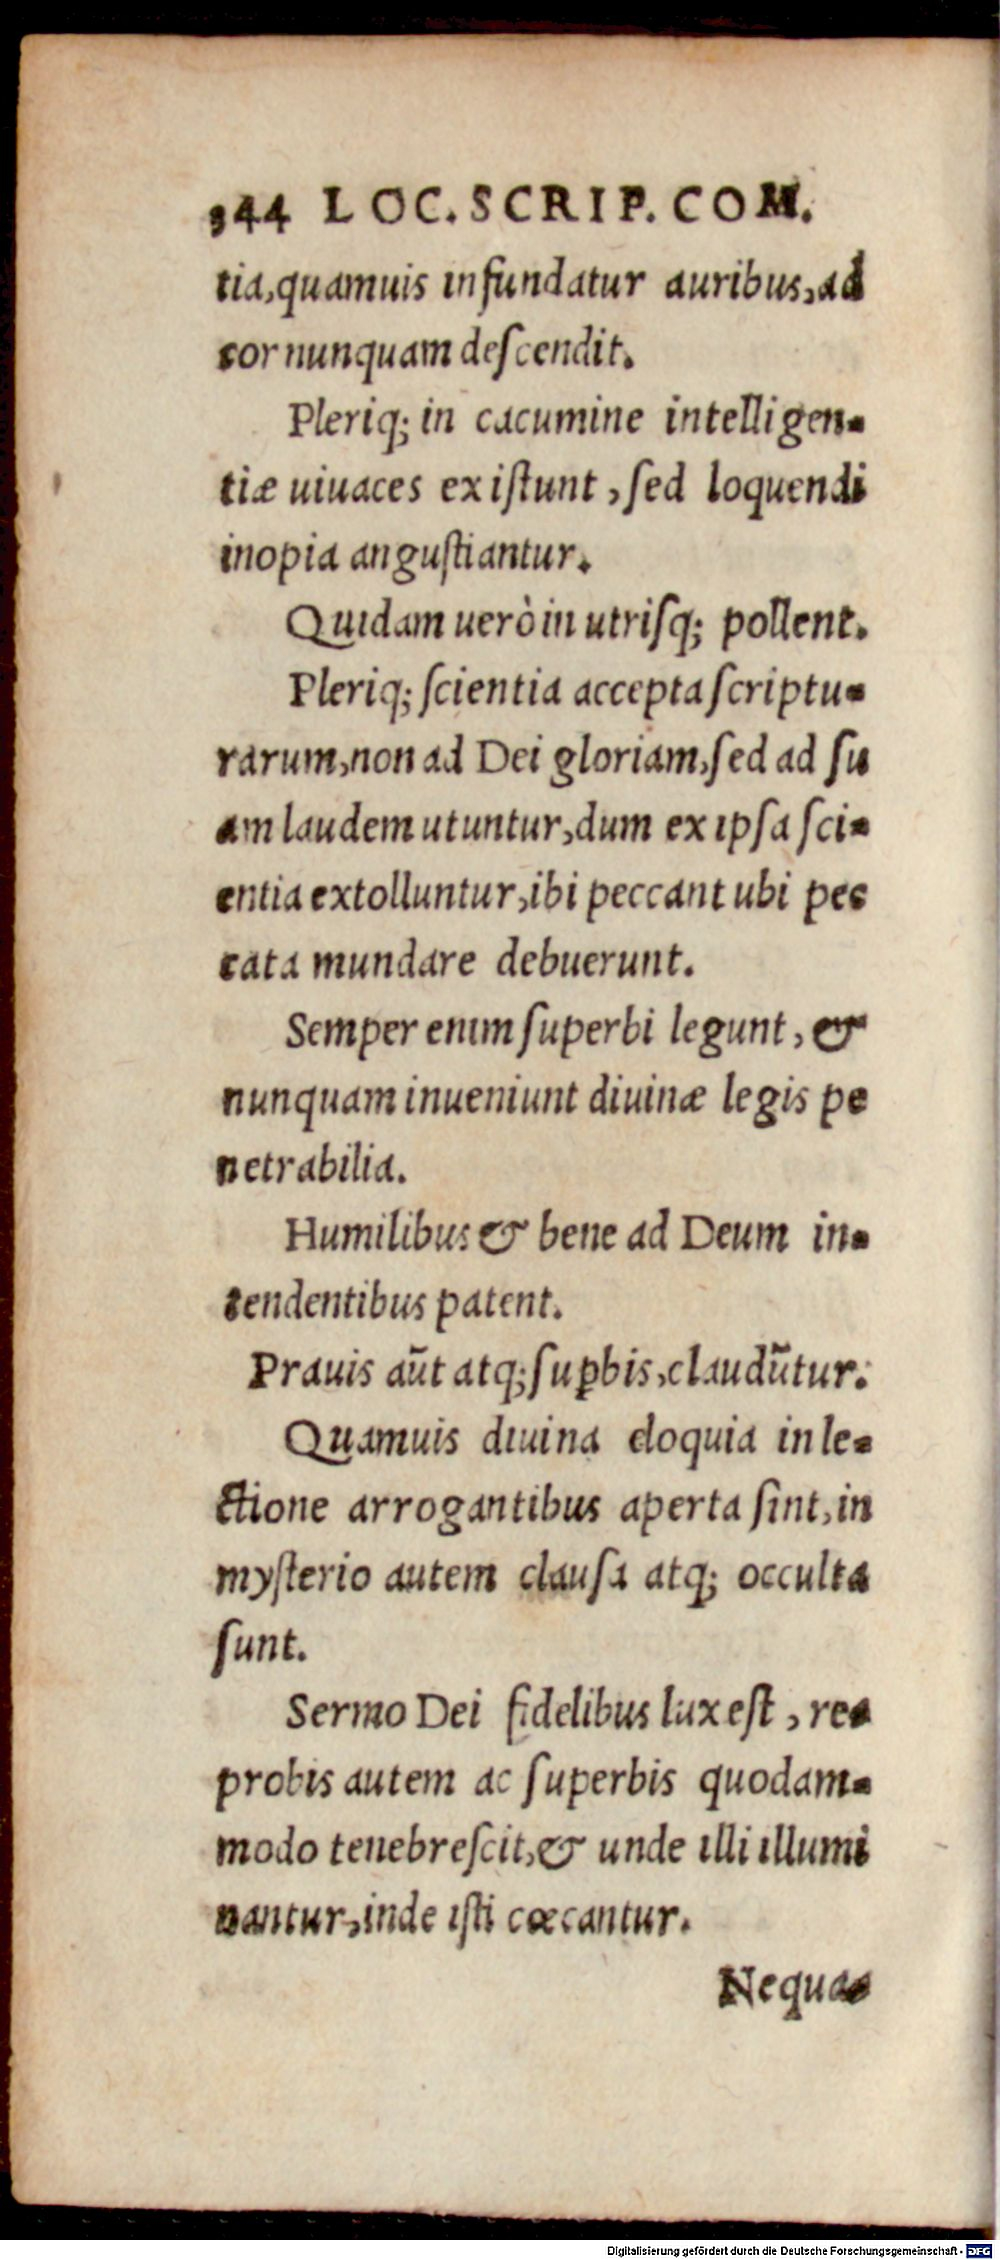 344 LOC. SCRIP. COM.
tia, quamuis infundatur auribus, ad
cor nunquam deſcendit.
Pleriq; in cacumine intelligen-
tiæ uiuaces exiſtunt, ſed loquendi
inopia anguſtiantur.
Quidam uerò in utriſq; pollent.
Pleriq; ſcientia accepta ſcriptu-
rarum, non ad Dei gloriam, ſed ad ſu
am laudem utuntur, dum ex ipſa ſci-
entia extolluntur, ibi peccant ubi pec
cata mundare debuerunt.
Semper enim ſuperbi legunt, &
nunquam inueniunt diuinæ legis pe
netrabilia.
Humilibus & bene ad Deum in-
tendentibus patent.
Prauis aūt atq; ſuꝑbis, claudūtur.
Quamuis diuina eloquia in le-
ctione arrogantibus aperta ſint, in
myſterio autem clauſa atq; occulta
ſunt.
Sermo Dei fidelibus lux eſt, re-
probis autem ac ſuperbis quodam-
modo tenebreſcit, & unde illi illumi
nantur, inde iſti cœcantur.
Nequa-
Digitalisierung gefördert durch die Deutsche Forschungsgemeinschaft - DFG